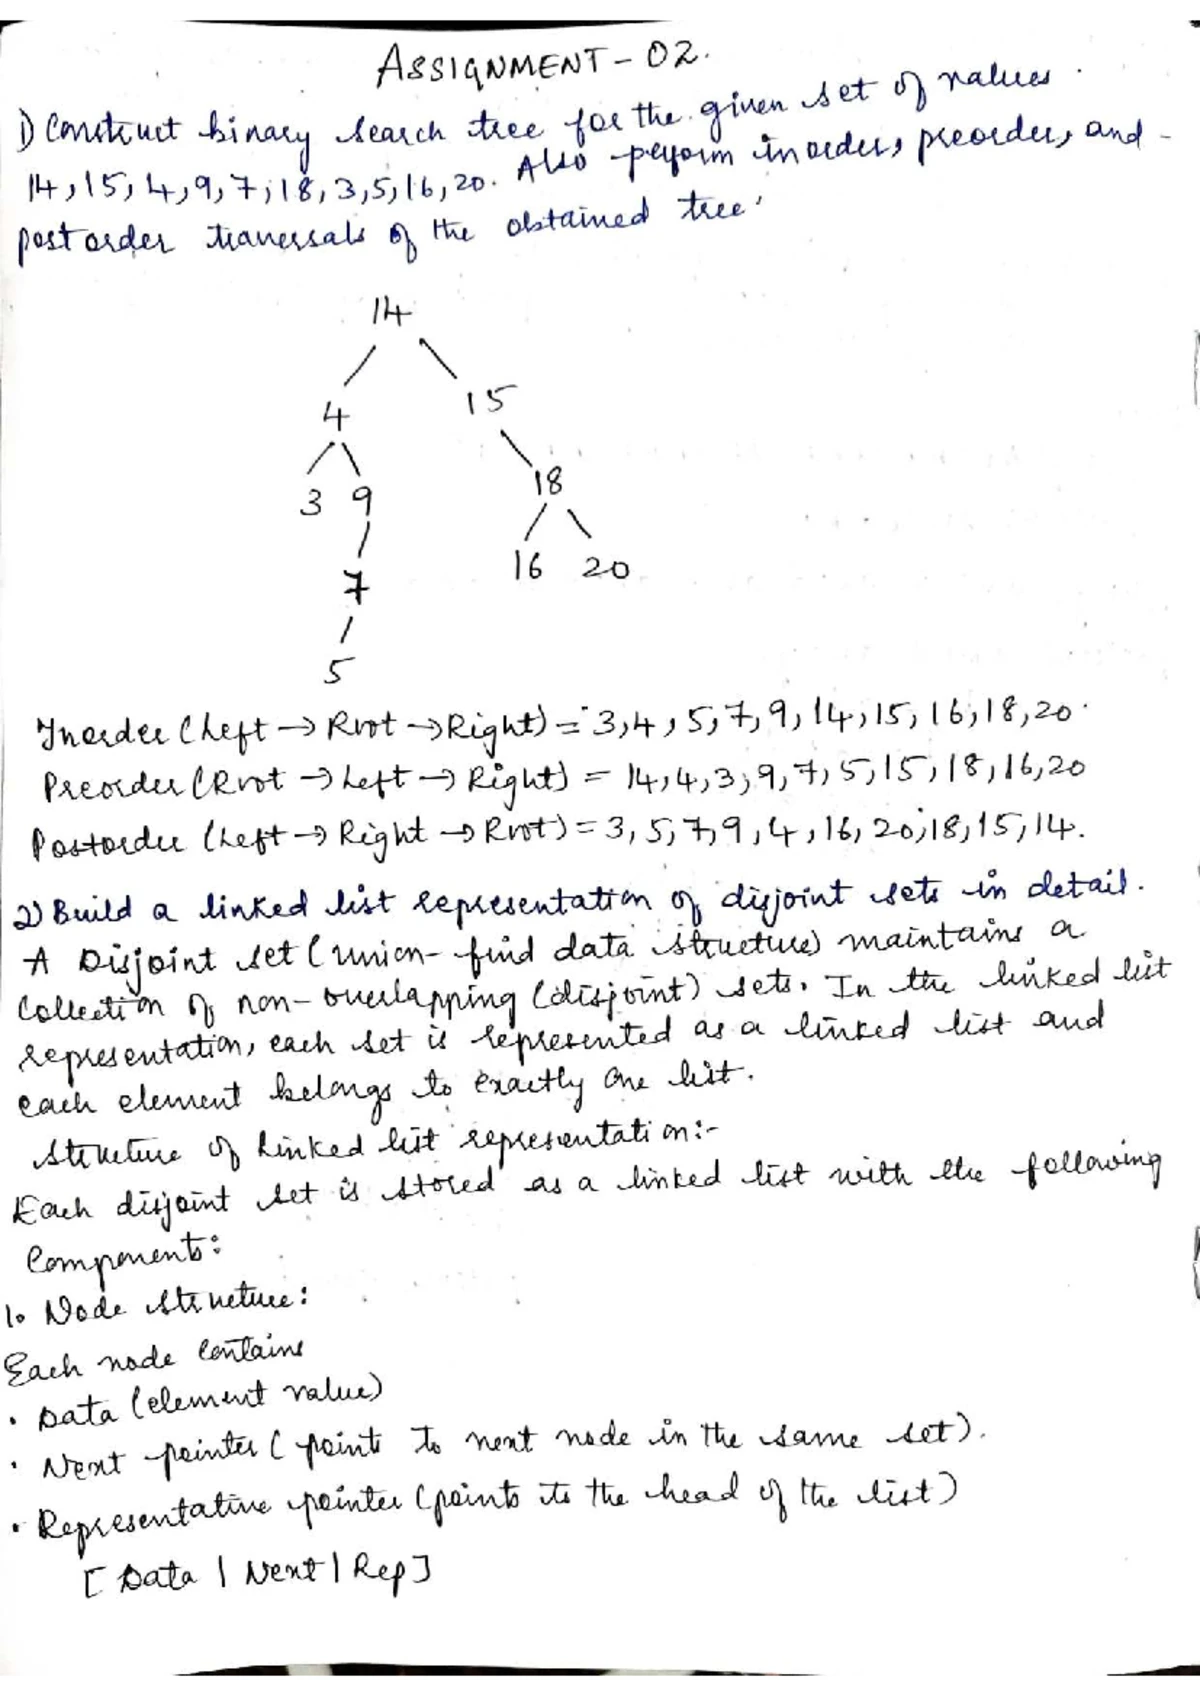 ASSIGNMENT - 02.
1) Construct binary search tree for the given set of values.
14, 15, 4, 9, 7, 18, 3, 5, 16, 20. Also peyorm inorder, preorder, and -
post order traversals of the obtained tree.
14
4 15
3 9 18
7 16 20
5
Inorder (Left → Root → Right) = 3, 4, 5, 7, 9, 14, 15, 16, 18, 20.
Preorder (Root → Left → Right) = 14, 4, 3, 9, 7, 5, 15, 18, 16, 20
Postorder (Left → Right → Root) = 3, 5, 7, 9, 4, 16, 20, 18, 15, 14.
2) Build a linked list representation of disjoint sets in detail.
A Disjoint set (union-find data structure) maintains a
Collection of non-overlapping (disjoint) sets. In the linked list
representation, each set is represented as a linked list and
each element belongs to exactly one list.
Structure of Linked list representation:-
Each disjoint set is stored as a linked list with the following
Components:
1. Node structure:
Each node contains
• Data (element value)
• Next pointer ( points to next node in the same set).
• Representative pointer (points to the head of the list)
[ Data | Next | Rep ]